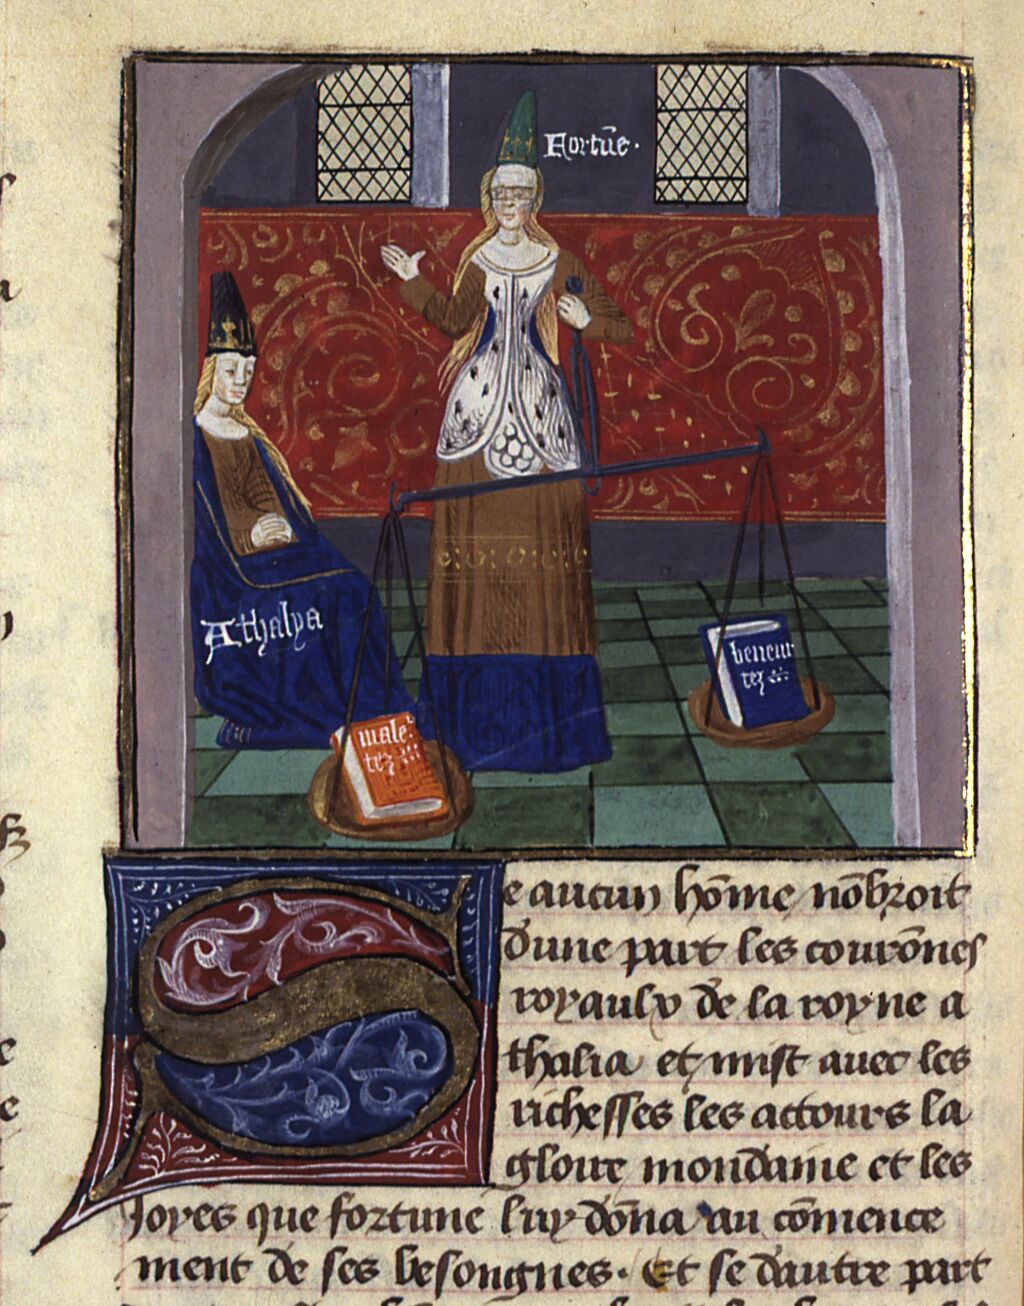 Fortūe·
Athalya
male
tez
beneur
tez
Se aucun hōme nōbroit
dune part les courōnes
royaulx de la royne a
thalia et mist auec les
richesses les attours la
gloire mondaine et les
Joyes que fortune luy dōna au cōmence
ment de ses besongnes· Et se dautre part